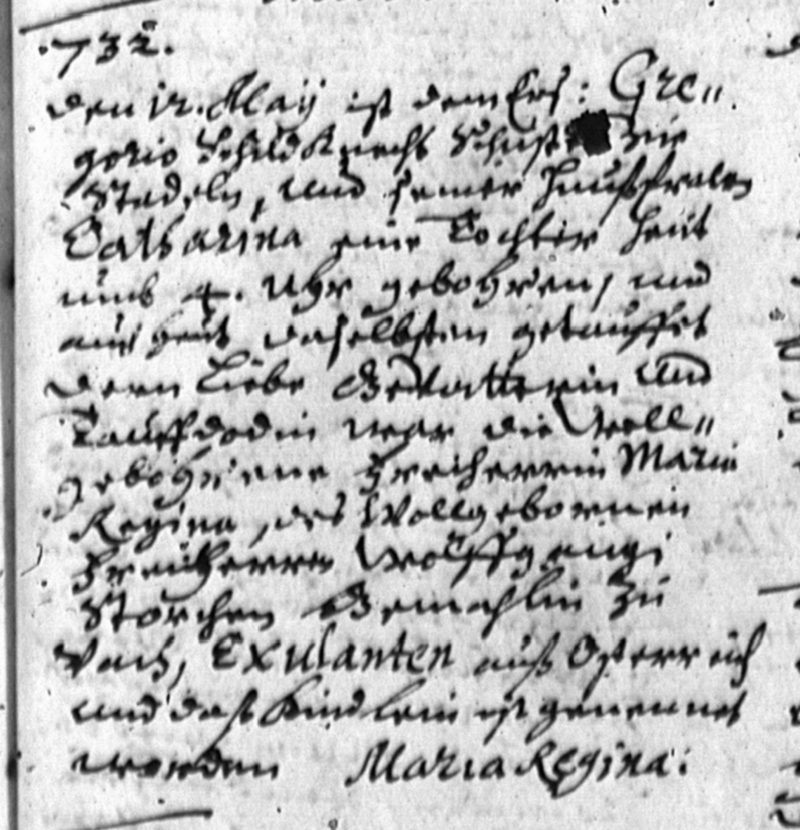 .732.
den 12. Maij ist dem Ers: Gre„
gorio Schildknecht Schuster zu
Stadeln, und seiner Haußfrawen
Catharina eine Tochter heut
umb 4. Uhr gebohren, und
auch heut daselbsten getauffet
dern Liebe Gevatterin und
Tauffdodin war die Woll„
gebohrene Freiherrin Maria
Regina, des Wollgebornen
Freiherrn Wolffgangi
Storchen Gemahlin zu
Vach, Exulanten auß Österreich
und daß Kindlein ist genennet
worden Maria Regina: